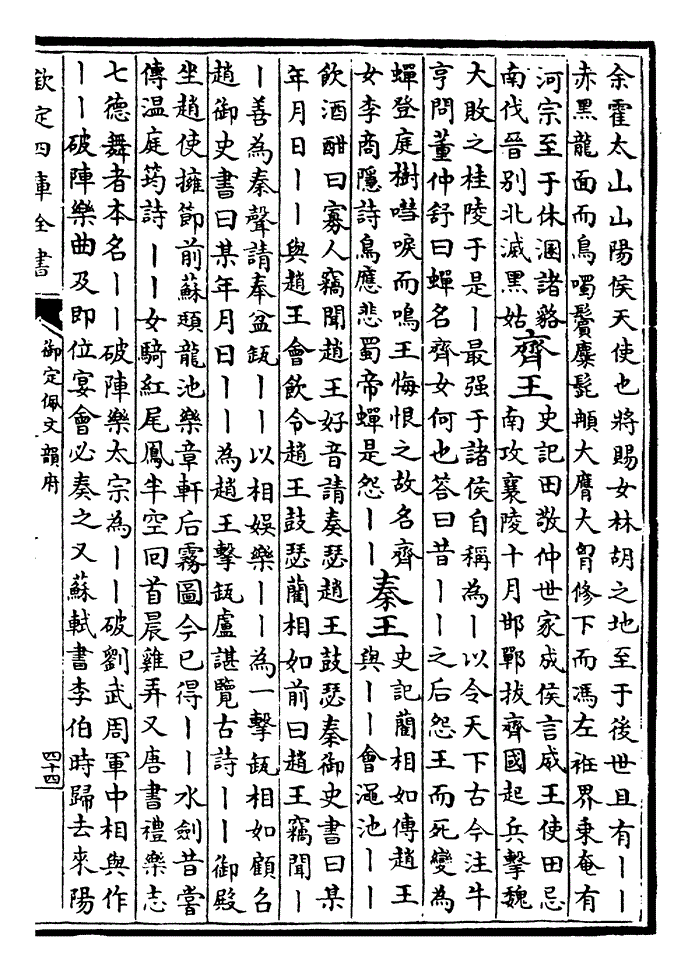 余霍太山山陽侯天使也將賜女林胡之地至于後世且有丨丨
赤黑龍面而鳥噣鬢麋髭䫇大膺大胷修下而馮左袵界乗奄有
河宗至于休溷諸貉
南伐晉别北滅黑姑
齊王
史記田敬仲世家成侯言威王使田忌
南攻襄陵十月邯鄲拔齊國起兵擊魏
大敗之桂陵于是丨最强于諸侯自稱為丨以令天下古今注牛
亨問董仲舒曰蟬名齊女何也答曰昔丨丨之后怨王而死變為
蟬登庭樹嘒唳而鳴王悔恨之故名齊
女李商隱詩鳥應悲蜀帝蟬是怨丨丨
秦王
史記藺相如傳趙王
與丨丨會澠池丨丨
飲酒酣曰寡人竊聞趙王好音請奏瑟趙王鼓瑟秦御史書曰某
年月日丨丨與趙王會飲令趙王鼓瑟藺相如前曰趙王竊聞丨
丨善為秦聲請奉盆缻丨丨以相娛樂丨丨為一擊缻相如顧召
趙御史書曰某年月日丨丨為趙王擊缻盧諶覽古詩丨丨御殿
坐趙使擁節前蘇頲龍池樂章軒后霧圖今已得丨丨水劍昔嘗
傳温庭筠詩丨丨女騎紅尾鳳半空回首晨雞弄又唐書禮樂志
七德舞者本名丨丨破陣樂太宗為丨丨破劉武周軍中相與作
丨丨破陣樂曲及即位宴會必奏之又蘇軾書李伯時歸去來陽
欽定四庫全書
御定佩文韻府
四十四